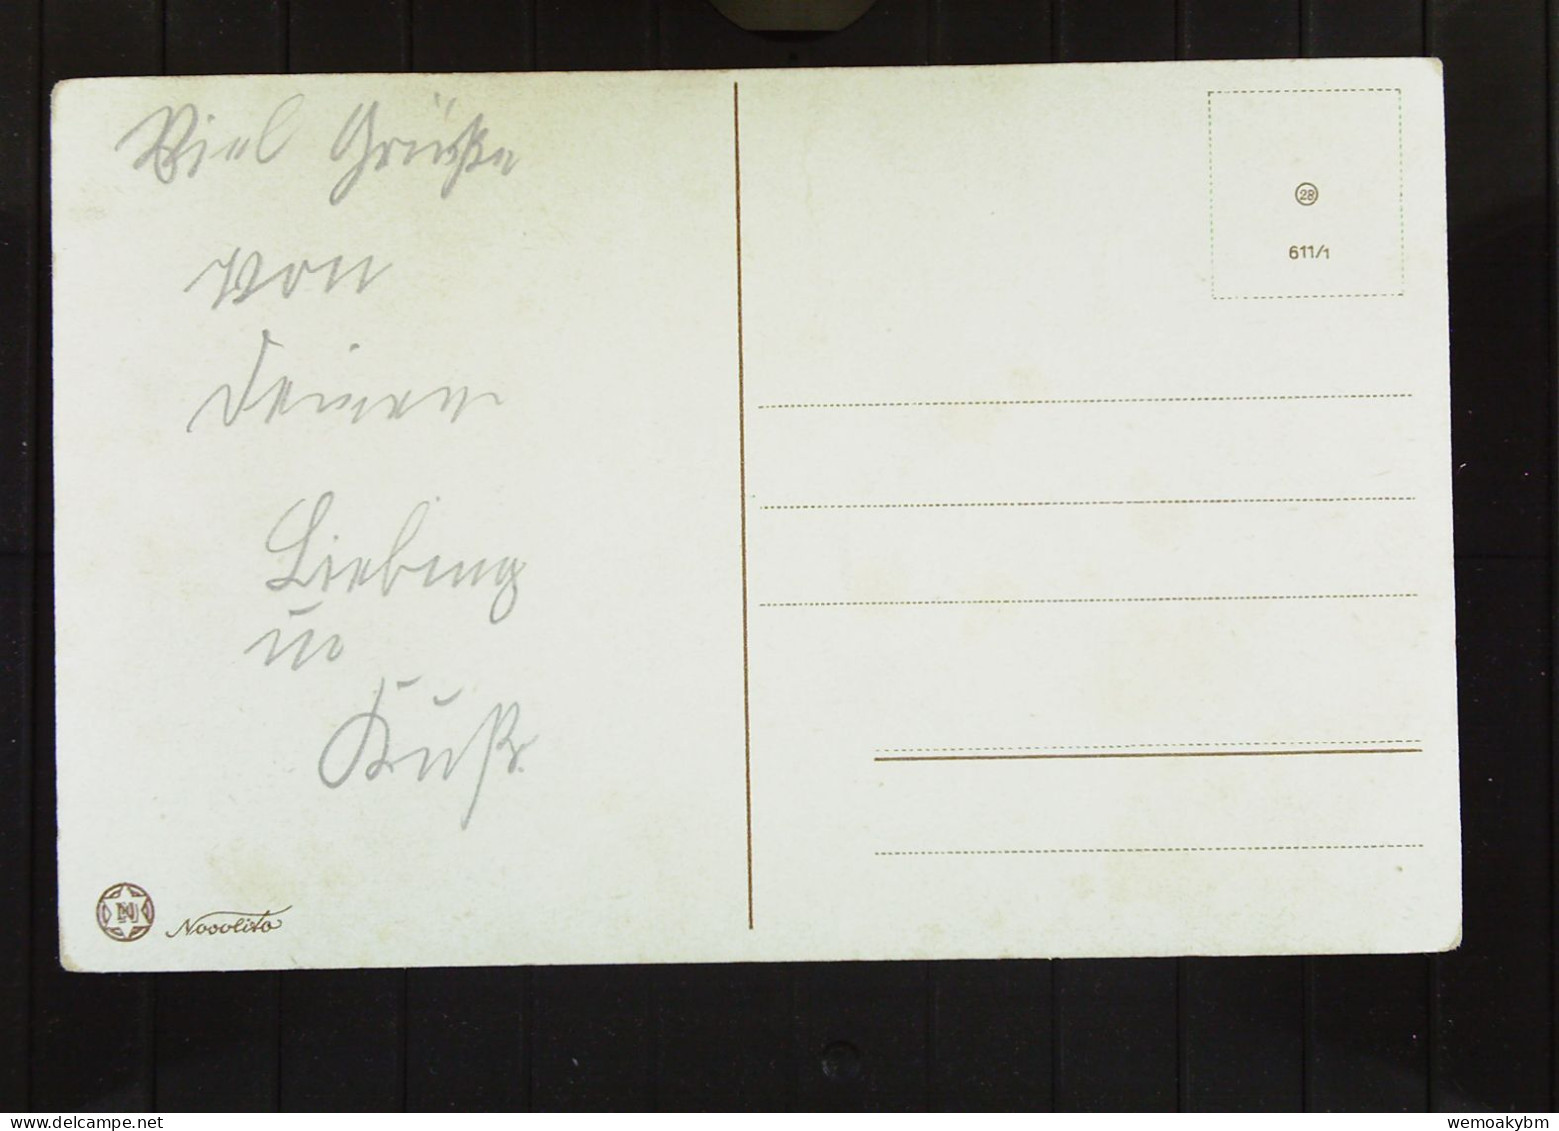 Viel Grüße
von
Deinen
Liebing
u
Kuß.
28
611/1
N
Novolito
www.delcampe.net
wemoakybm